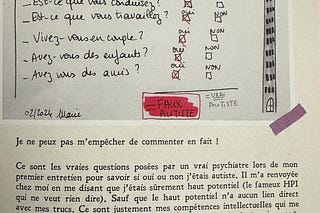 _ Est-ce que vous conduisez?
_ Est-ce que vous travaillez?
oui NON
_ Vivez-vous en couple?
oui NON
_ Avez-vous des enfants?
oui NON
_ Avez vous des amis?
= FAUX AUTISTE
= VRAI AUTISTE
02/2024
Je ne peux pas m'empêcher de commenter en fait !
Ce sont les vraies questions posées par un vrai psychiatre lors de mon
premier entretien pour savoir si oui ou non j'étais autiste. Il m'a renvoyée
chez moi en me disant que j'étais sûrement haut potentiel (le fameux HPI
qui ne veut rien dire). Sauf que le haut potentiel n'a aucun lien direct
avec mes trucs. Ce sont justement mes compétences intellectuelles qui me